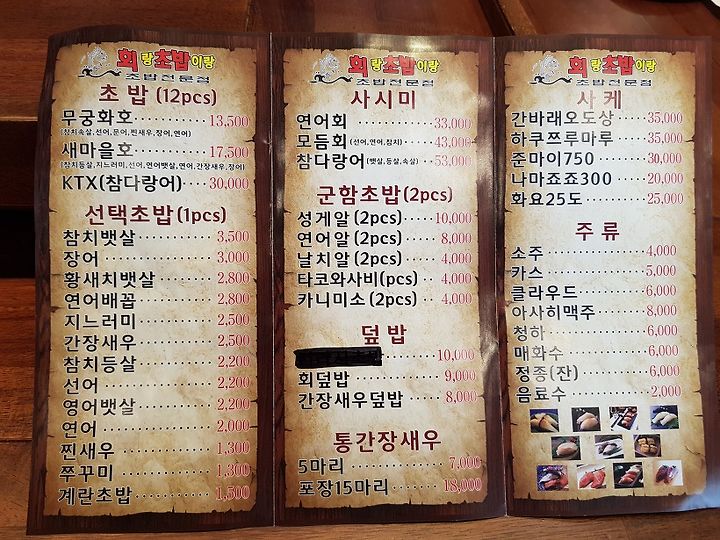 회랑초밥이랑
초밥전문점
초 밥 (12pcs)
무궁화호 13,500
(참치속살,선어,문어,찐새우,장어,연어)
새마을호 17,500
(참치등살,지느러미,선어,연어뱃살,연어,간장새우,장어)
KTX(참다랑어) 30,000
선택초밥(1pcs)
참치뱃살 3,500
장어 3,000
황새치뱃살 2,800
연어배꼽 2,800
지느러미 2,500
간장새우 2,500
참치등살 2,200
선어 2,200
영어뱃살 2,200
연어 2,000
찐새우 1,300
쭈꾸미 1,300
계란초밥 1,500
회랑초밥이랑
초밥전문점
사시미
연어회 33,000
모듬회(선어,연어,참치) 43,000
참다랑어(뱃살,등살,속살) 53,000
군함초밥(2pcs)
성게알(2pcs) 10,000
연어알(2pcs) 8,000
날치알(2pcs) 4,000
타코와사비(pcs) 4,000
카니미소(2pcs) 4,000
덮밥
10,000
회덮밥 9,000
간장새우덮밥 8,000
통간장새우
5마리 7,000
포장15마리 18,000
회랑초밥이랑
초밥전문점
사 케
간바래오도상 35,000
하쿠쯔루마루 35,000
준마이750 30,000
나마죠죠300 20,000
화요25도 25,000
주 류
소주 4,000
카스 5,000
클라우드 6,000
아사히맥주 8,000
청하 6,000
매화수 6,000
정종(잔) 6,000
음료수 2,000